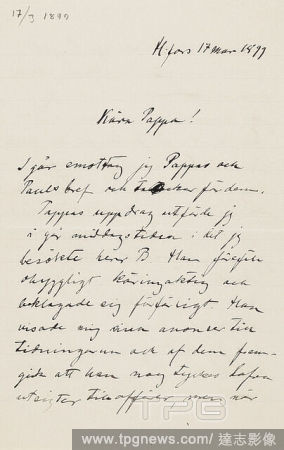 17/3 1899
H:fors 17 mar 1899
Kära Pappa!
I går emottog jag Pappas och
Pauls bref och tackar för dem.
Pappas uppdrag utförde jag
i går middagstiden i det jag
besökte herr B Han
obeskrifligt och
beklagade sig förfärligt Han
visade mig sina annoncer till
tidningarna och af dem fram-
gick att han nog tyckes hafva
utsigter till affärer men när
TPG
www.tpgnews.com / 達志影像